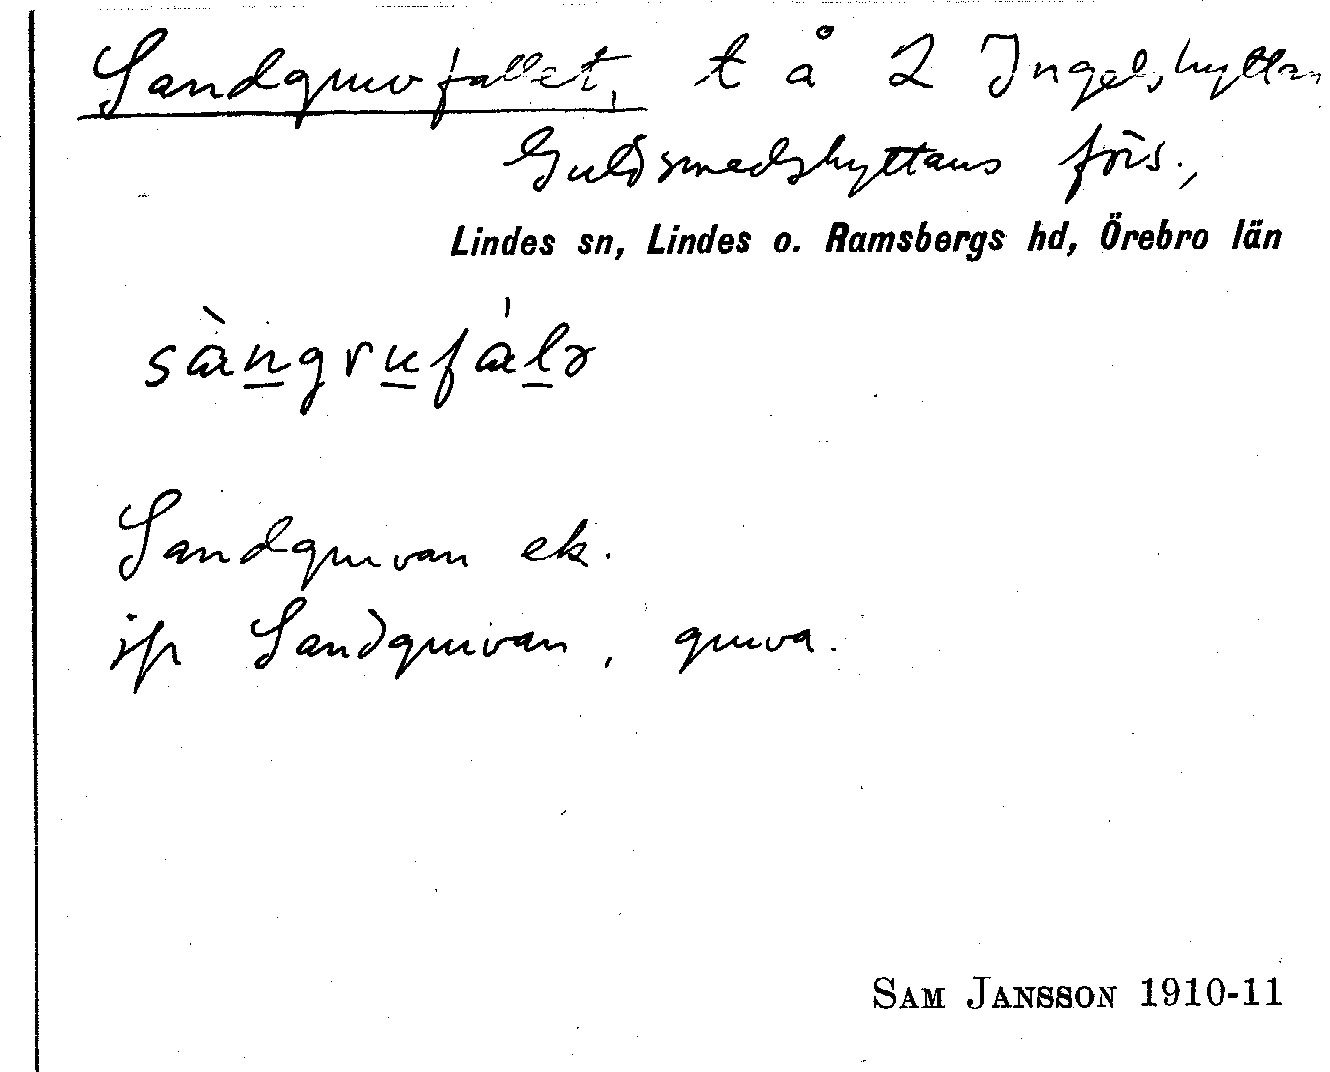 Sandgruvfallet, t å 2 Ingelshyttan
Guldsmedshyttans förs.,
Lindes sn, Lindes o. Ramsbergs hd, Örebro län
sàngrufálə
Sandgruvan ek.
ifr Sandgruvan, gruva.
SAM JANSSON 1910-11